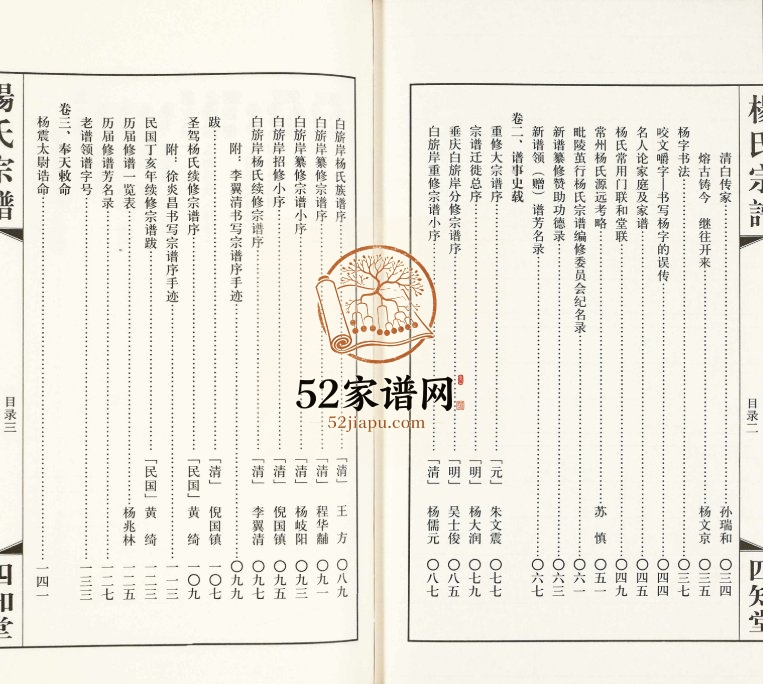 楊氏宗譜
目录二
四知堂
清白传家……孙瑞和 〇三四
熔古铸今 继往开来……杨文京 〇三五
杨字书法……〇三七
咬文嚼字—书写杨字的误传……〇四四
名人论家庭及家谱……〇四五
杨氏常用门联和堂联……〇四九
常州杨氏源远考略……苏 慎 〇五一
毗陵茧行杨氏宗谱编修委员会纪名录……〇六一
新谱纂修赞助功德录……〇六三
新谱领（赠）谱芳名录……〇六七
卷二、谱事史载
重修大宗谱序……「元」 朱文震 〇七七
宗谱迁徙总序……「明」 杨大润 〇七九
垂庆白旂岸分修宗谱序……「明」 吴士俊 〇八五
白旂岸重修宗谱小序……「清」 杨儒元 〇八七
白旂岸杨氏族谱序……「清」 王 方 〇八九
白旂岸纂修宗谱序……「清」 程华黼 〇九一
白旂岸纂修宗谱小序……「清」 杨岐阳 〇九三
白旂岸招修小序……「清」 倪国镇 〇九五
白旂岸杨氏续修宗谱序……「清」 李翼清 〇九七
附：李翼清书写宗谱序手迹……〇九九
跋……「清」 倪国镇 一〇七
圣驾杨氏续修宗谱序……「民国」 黄 绮 一〇九
附：徐炎昌书写宗谱序手迹……一一三
民国丁亥年续修宗谱跋……「民国」 黄 绮 一二三
历届修谱一览表……杨兆林 一二五
历届修谱芳名录……一二七
老谱领谱字号……一三三
卷三、奉天敕命
杨震太尉诰命……一四一
楊氏宗譜
目录三
四知堂
52家谱网
52jiapu.com